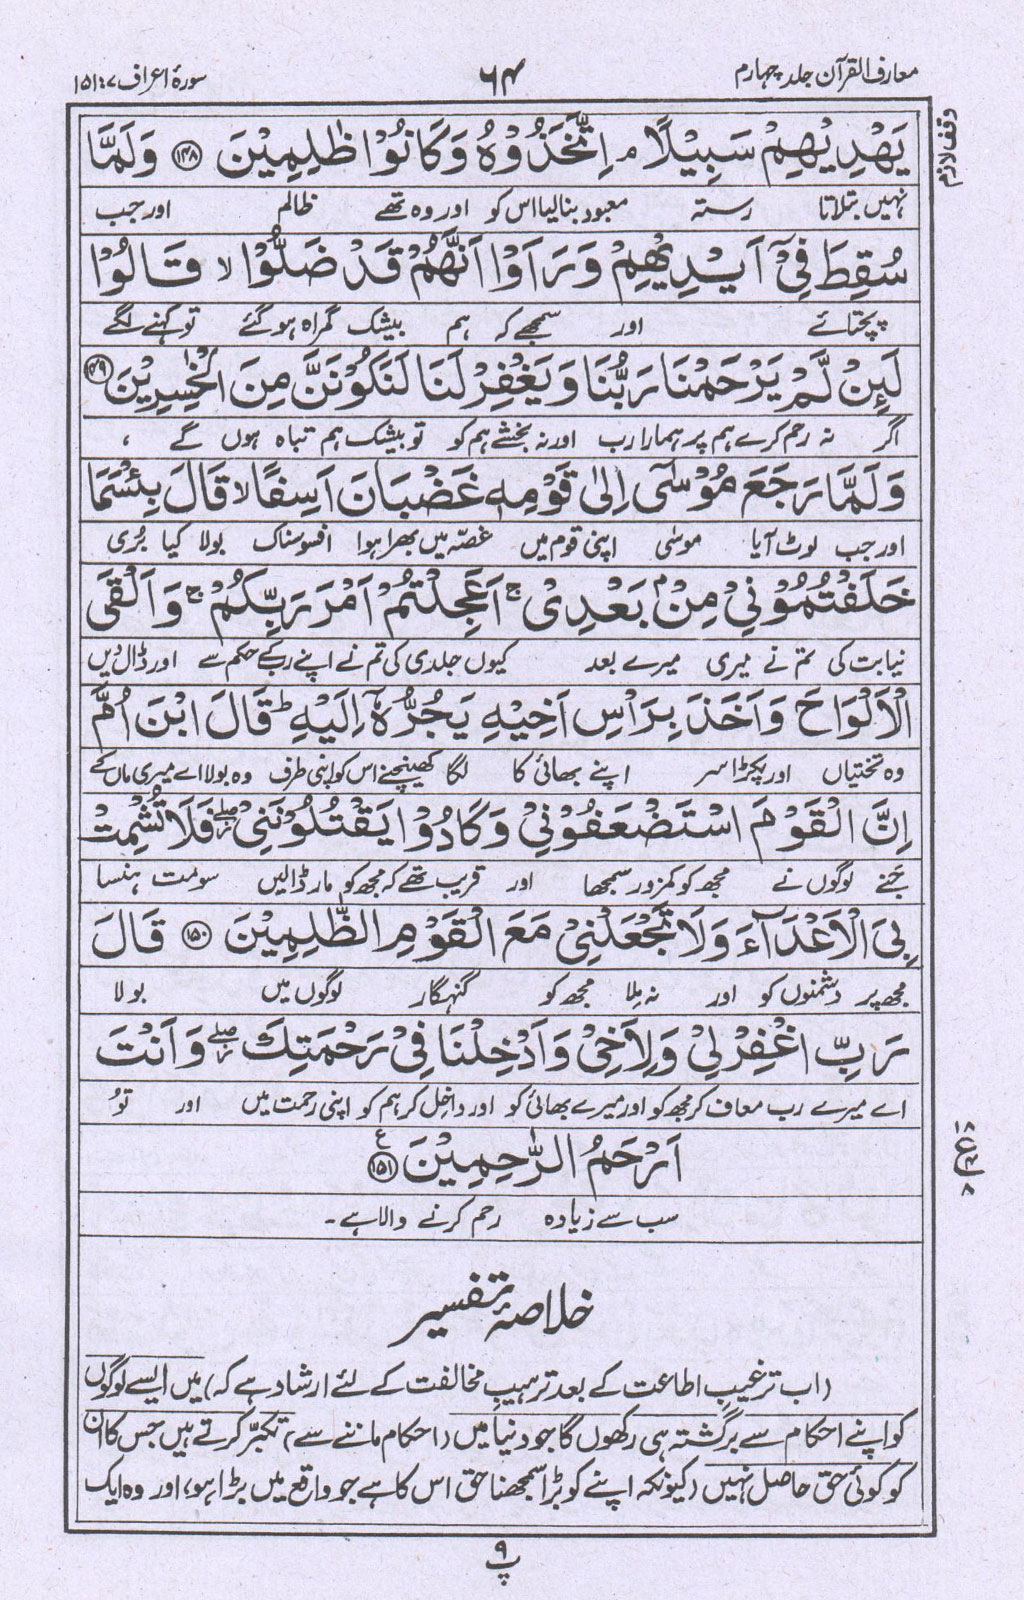 معارف القرآن جلد چہارم
۶۴
سورۂ اعراف ۷:۱۵۱
وقف لازم
یَهْدِیْهِمْ سَبِیْلًا ۘ اِتَّخَذُوْهُ وَكَانُوْا ظٰلِمِیْنَ ﴿۱۴۸﴾ وَلَمَّا
نہیں بتلاتا رستہ معبود بنالیا اس کو اور وہ تھے ظالم اور جب
سُقِطَ فِیْۤ اَیْدِیْهِمْ وَرَاَوْا اَنَّهُمْ قَدْ ضَلُّوْا ۙ قَالُوْا
پچتائے اور سمجھے کہ ہم بیشک گمراہ ہوگئے تو کہنے لگے
لَئِنْ لَّمْ یَرْحَمْنَا رَبُّنَا وَیَغْفِرْ لَنَا لَنَكُوْنَنَّ مِنَ الْخٰسِرِیْنَ ﴿۱۴۹﴾
اگر نہ رحم کرے ہم پر ہمارا رب اور نہ بخشے ہم کو تو بیشک ہم تباہ ہوں گے ،
وَلَمَّا رَجَعَ مُوْسٰۤی اِلٰی قَوْمِهٖ غَضْبَانَ اَسِفًا ۙ قَالَ بِئْسَمَا
اور جب لوٹ آیا موسٰی اپنی قوم میں غصّہ میں بھرا ہوا افسوسناک بولا کیا بُری
خَلَفْتُمُوْنِیْ مِنْۢ بَعْدِیْ ۚ اَعَجِلْتُمْ اَمْرَ رَبِّكُمْ ۚ وَاَلْقَی
نیابت کی تم نے میری میرے بعد کیوں جلدی کی تم نے اپنے رب کے حکم سے اور ڈال دیں
الْاَلْوَاحَ وَاَخَذَ بِرَاْسِ اَخِیْهِ یَجُرُّهٗۤ اِلَیْهِ ؕ قَالَ ابْنَ اُمَّ
وہ تختیاں اور پکڑا سر اپنے بھائی کا لگا کھینچنے اس کو اپنی طرف وہ بولا اے میری ماں کے
اِنَّ الْقَوْمَ اسْتَضْعَفُوْنِیْ وَكَادُوْا یَقْتُلُوْنَنِیْ ۖ فَلَا تُشْمِتْ
جنے لوگوں نے مجھ کو کمزور سمجھا اور قریب تھے کہ مجھ کو مار ڈالیں سو مت ہنسا
بِیَ الْاَعْدَآءَ وَلَا تَجْعَلْنِیْ مَعَ الْقَوْمِ الظّٰلِمِیْنَ ﴿۱۵۰﴾ قَالَ
مجھ پر دشمنوں کو اور نہ مِلا مجھ کو گنہگار لوگوں میں بولا
رَبِّ اغْفِرْ لِیْ وَلِاَخِیْ وَاَدْخِلْنَا فِیْ رَحْمَتِكَ ۖ وَاَنْتَ
اے میرے رب معاف کر مجھ کو اور میرے بھائی کو اور داخل کر ہم کو اپنی رحمت میں اور تُو
اَرْحَمُ الرّٰحِمِیْنَ ﴿۱۵۱﴾ ع
۱۸ ع ۴ ۸
سب سے زیادہ رحم کرنے والا ہے۔
خلاصۂ تفسیر
(اب ترغیبِ اطاعت کے بعد ترہیبِ مخالفت کے لئے ارشاد ہے کہ) میں ایسے لوگوں
کو اپنے احکام سے برگشتہ ہی رکھوں گا جو دنیا میں (احکام ماننے سے) تکبّر کرتے ہیں جس کا ان
کو کوئی حق حاصل نہیں (کیونکہ اپنے کو بڑا سمجھنا حق اس کا ہے جو واقع میں بڑا ہو، اور وہ ایک
۹
پ